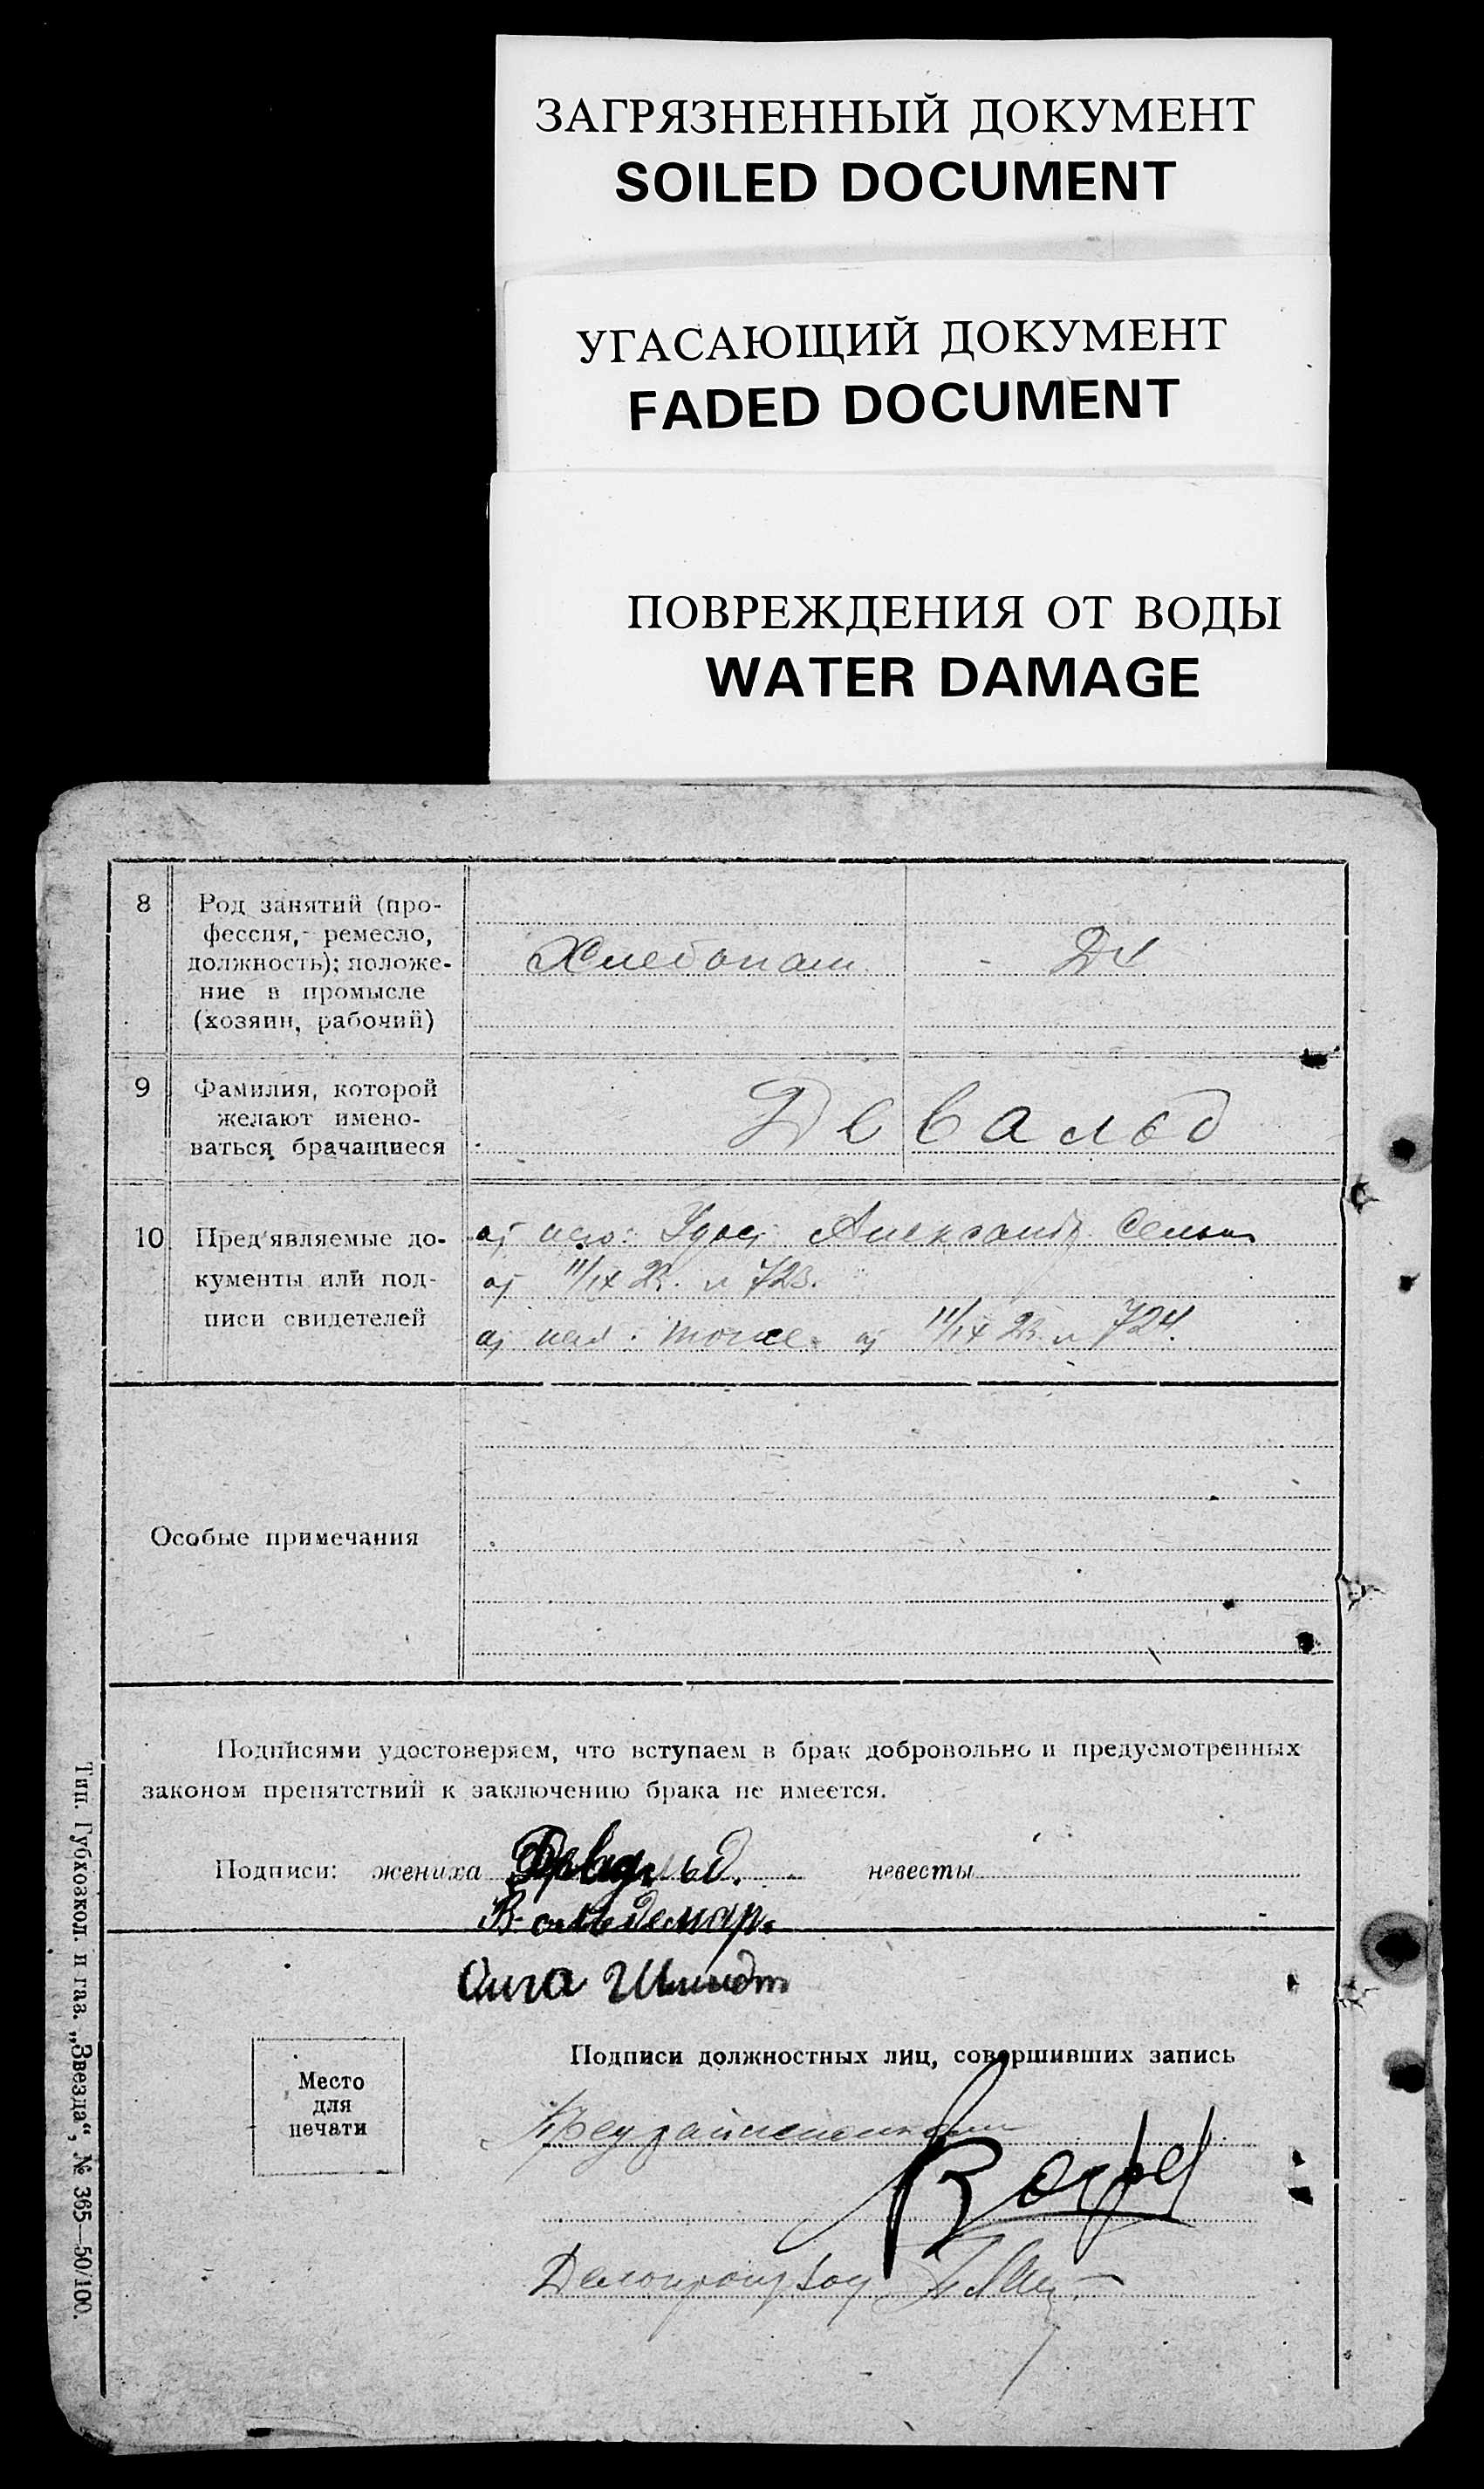 ЗАГРЯЗНЕННЫЙ ДОКУМЕНТ
SOILED DOCUMENT
УГАСАЮЩИЙ ДОКУМЕНТ
FADED DOCUMENT
ПОВРЕЖДЕНИЯ ОТ ВОДЫ
WATER DAMAGE
8 Род занятий (про-
фессия, ремесло,
должность); положе-
ние в промысле
(хозяин, рабочий)
Хлебопаш
9 Фамилия, которой
желают имено-
ваться брачащиеся
Девальд
10 Пред'являемые до-
кументы или под-
писи свидетелей
него: Удост Александр
11/IX 23. № 723.
нея: тоже 11/IX 23 № 724.
Особые примечания
Подписями удостоверяем, что вступаем в брак добровольно и предусмотренных
законом препятствий к заключению брака не имеется.
Подписи: жениха Девальд. невесты
Вольдемар.
Шмидт
Подписи должностных лиц, совершивших запись
Место
для
печати
Делопроизвод
Тип. Губхозкол. и газ. „Звезда“, № 365—50/100.